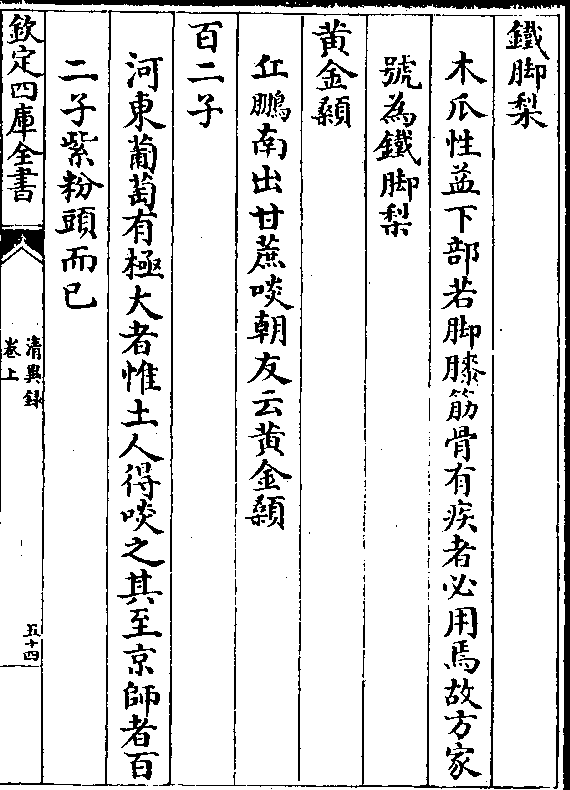 鐵脚梨
木瓜性益下部若脚膝筋骨有疾者必用焉故方家
號為鐵脚梨
黄金顙
丘鵬南出甘蔗啖朝友云黄金顙
百二子
河東葡萄有極大者惟土人得啖之其至京師者百
二子紫粉頭而已
欽定四庫全書
清異録
卷上
五十四